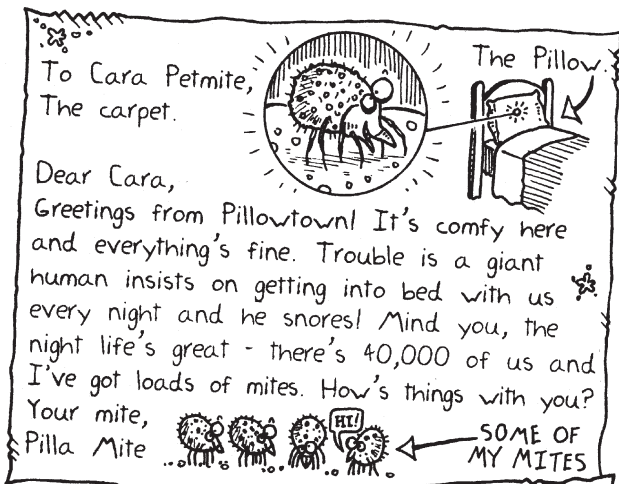 To Cara Petmite,
The carpet.
The Pillow.
Dear Cara,
Greetings from Pillowtown! It's comfy here
and everything's fine. Trouble is a giant
human insists on getting into bed with us
every night and he snores! Mind you, the
night life's great - there's 40,000 of us and
I've got loads of mites. How's things with you?
Your mite,
Pilla Mite
HI!
SOME OF
MY MITES